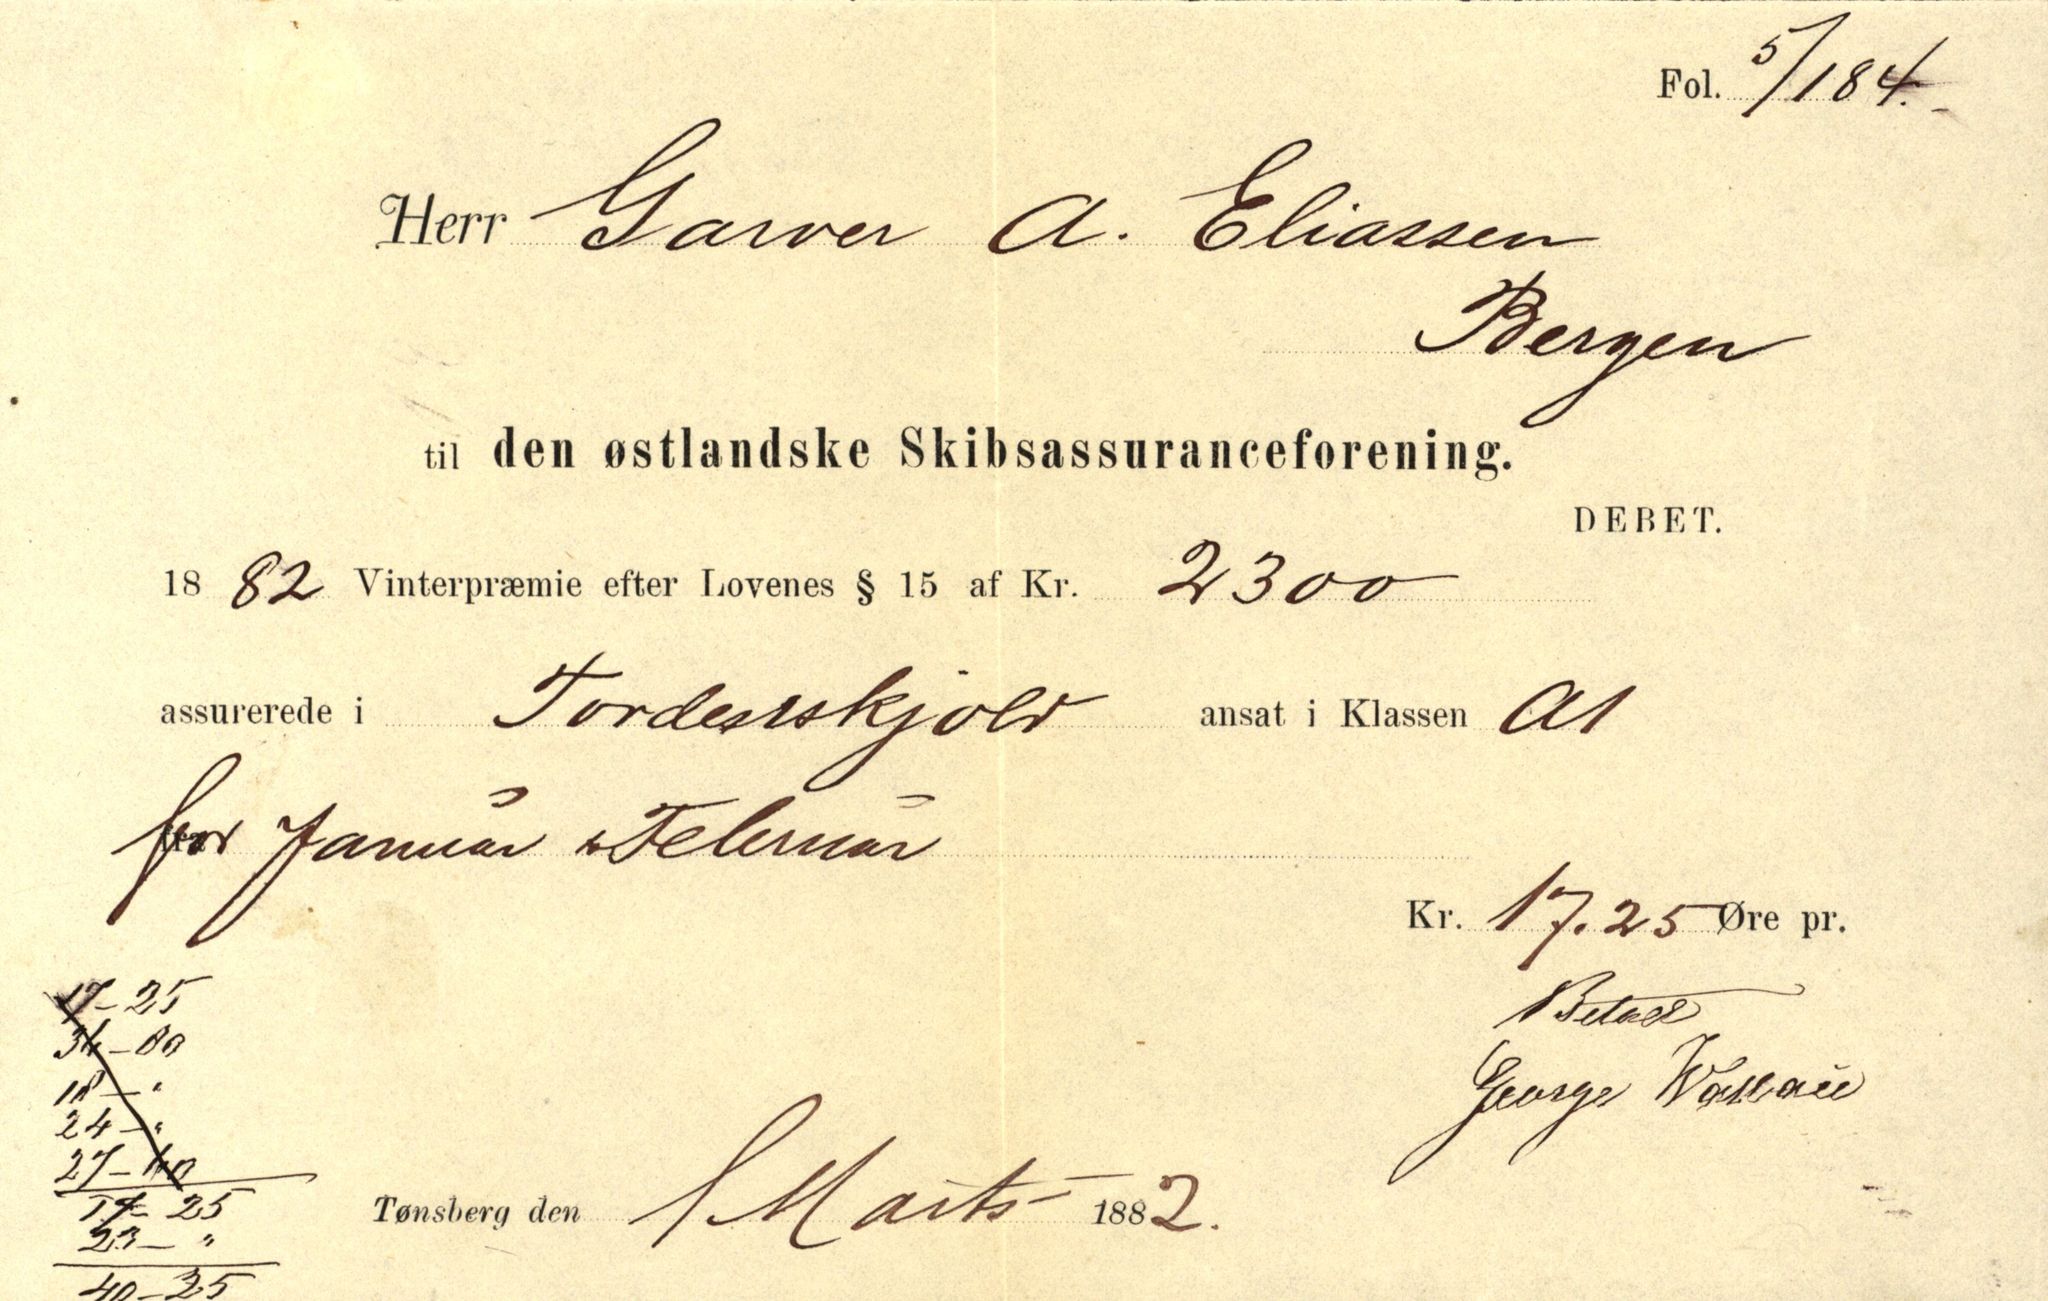 Fol. 5/184.
Herr Garver A. Eliassen
Bergen
til den østlandske Skibsassuranceforening.
DEBET.
1882 Vinterpræmie efter Lovenes § 15 af Kr. 2300
assurerede i Tordenskjold ansat i Klassen A1
for Januar & Februar
Kr. 17.25 Øre pr.
Betalt
George
17-25
18-"
24-"
Tønsberg den 1 Marts 1882.
17-25
23-"
40-25